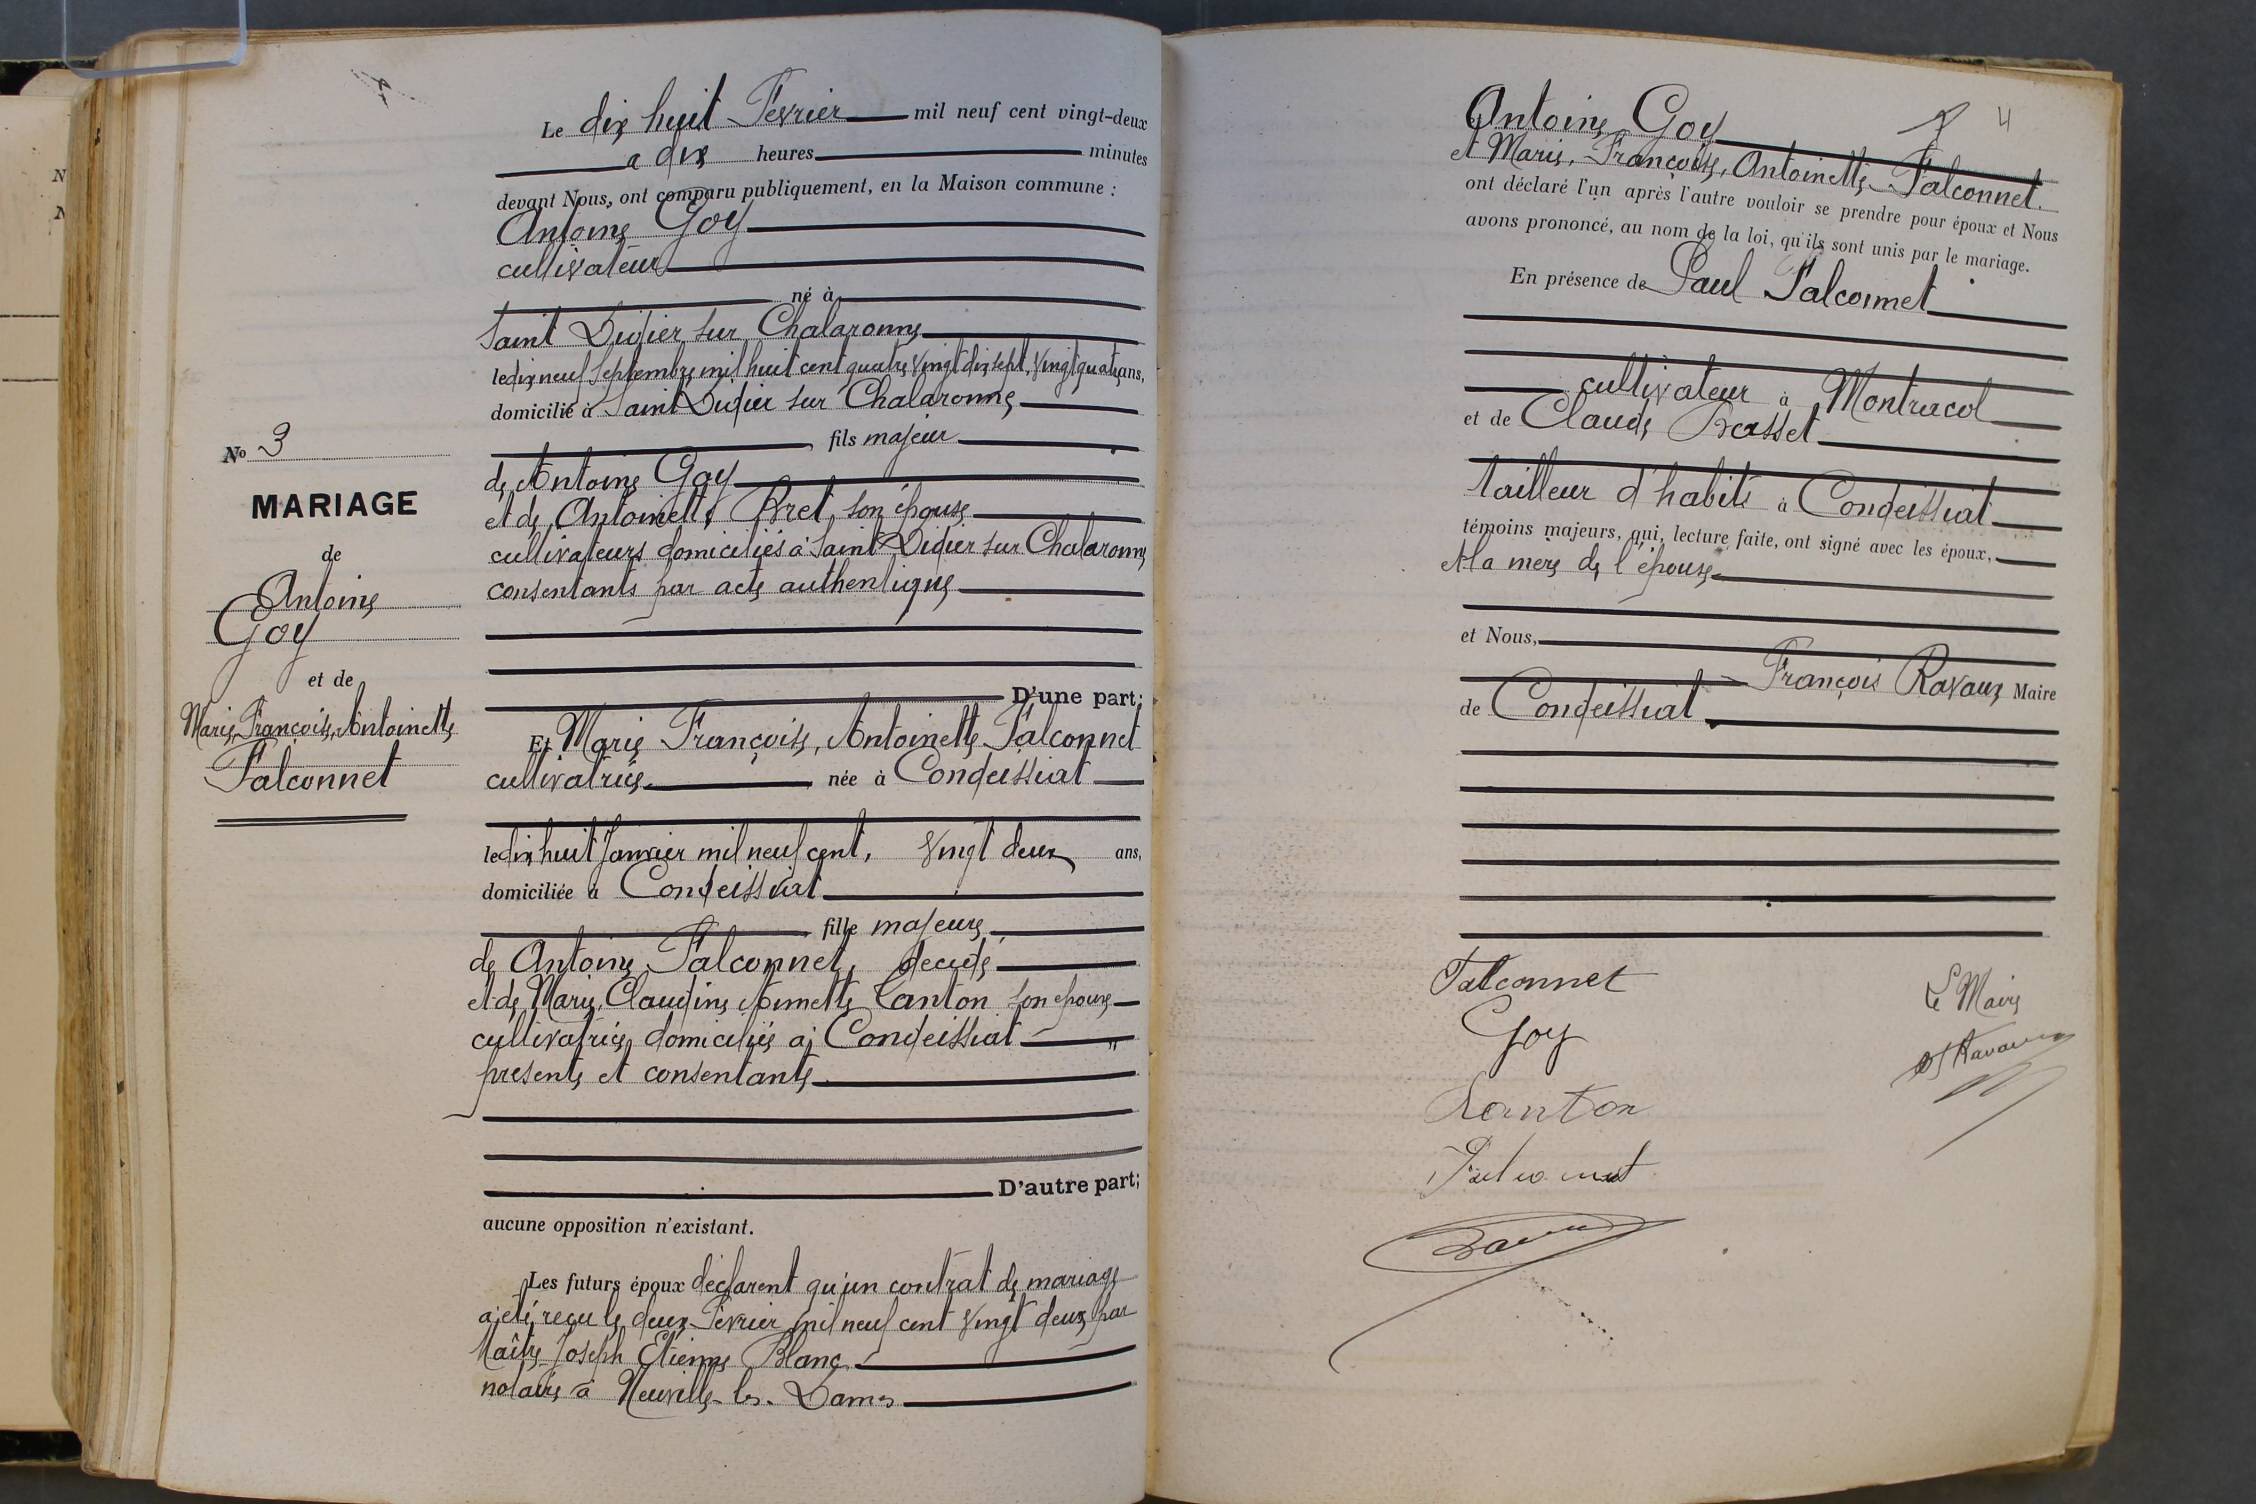 Le dix huit Février mil neuf cent vingt-deux
a dix heures minutes
devant Nous, ont comparu publiquement, en la Maison commune :
Antoine Goy
cultivateur
né à
Saint Didier sur Chalaronne
le dix neuf Septembre mil huit cent quatre vingt dix sept, vingt quatre ans,
domicilié à Saint Didier sur Chalaronne
fils majeur
de Antoine Goy
et de Antoinette Bret, son épouse
cultivateurs domiciliés à Saint Didier sur Chalaronne
consentants par acte authentique
D'une part;
Et Marie Françoise, Antoinette Falconnet
cultivatrice née à Condeissiat
le dix huit Janvier mil neuf cent, vingt deux ans,
domiciliée à Condeissiat
fille majeure
de Antoine Falconnet, decédé,
et de Marie, Claudine Annette Canton son épouse
cultivatrice, domiciliée à Condeissiat
présente et consentante
D'autre part;
aucune opposition n'existant.
Les futurs époux déclarent qu'un contrat de mariage
a été reçu le deux Février mil neuf cent vingt deux par
Maître Joseph Etienne Blanc
notaire à Neuville-les-Dames
No 3
MARIAGE
de
Antoine
Goy
et de
Marie, Françoise, Antoinette
Falconnet
4
Antoine Goy
et Marie, Françoise, Antoinette Falconnet.
ont déclaré l'un après l'autre vouloir se prendre pour époux et Nous
avons prononcé, au nom de la loi, qu'ils sont unis par le mariage.
En présence de Paul Falconnet
cultivateur à Montracol
et de Claude Brasset
tailleur d'habits à Condeissiat
témoins majeurs, qui, lecture faite, ont signé avec les époux,
et la mère de l'épouse
et Nous,
François Ravaux Maire
de Condeissiat
Falconnet
Goy
Canton
Falconnet
Le Maire
Ravaux